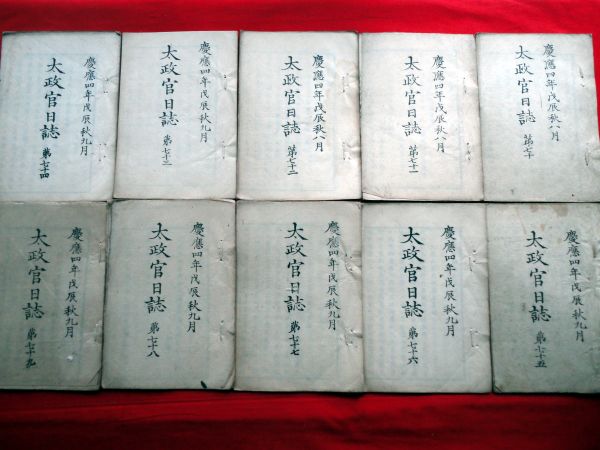 慶應四年戊辰秋八月
太政官日誌 第七十
慶應四年戊辰秋八月
太政官日誌 第七十一
慶應四年戊辰秋八月
太政官日誌 第七十二
慶應四年戊辰秋九月
太政官日誌 第七十三
慶應四年戊辰秋九月
太政官日誌 第七十四
慶應四年戊辰秋九月
太政官日誌 第七十五
慶應四年戊辰秋九月
太政官日誌 第七十六
慶應四年戊辰秋九月
太政官日誌 第七十七
慶應四年戊辰秋九月
太政官日誌 第七十八
慶應四年戊辰秋九月
太政官日誌 第七十九